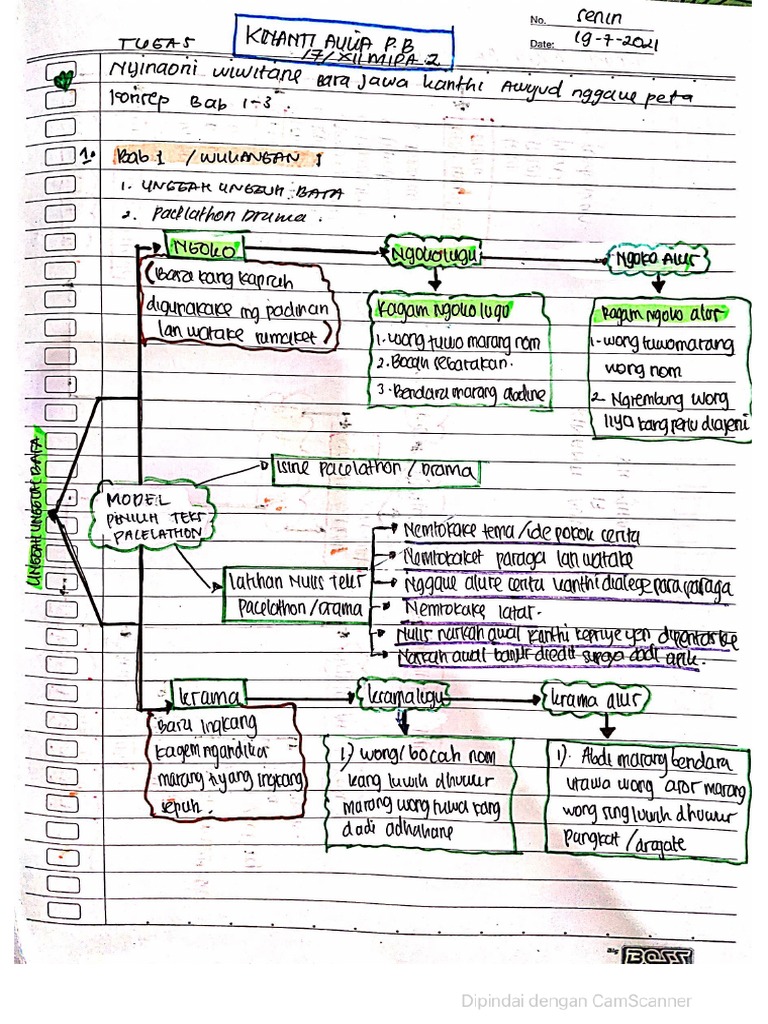 No. Senin
Date: 19-7-2021
TUGAS
KINANTI AULIA P.B
17/XII MIPA 2
Nyinaoni wiwitane Basa Jawa kanthi Awujud nggawe peta
konsep Bab 1-3.
1. Bab 1 / WULANGAN 1
1. UNGGAH UNGGUH BASA
2. Pacelathon Drama.
NGOKO
Ngoko lugu
Ngoko Alus
(Basa kang kaprah
digunakake ing padinan
lan watake rumaket)
Ragam Ngoko lugu
1. Wong tuwo marang nom
2. Bocah sebarakan.
3. Bendara marang abdine
Ragam ngoko alus
1. Wong tuwo marang
wong nom
2. Ngrembung wong
liya kang perlu diajeni
UNGGAH UNGGUH BASA
MODEL
PINILIH TEKS
PACELATHON
Isine pacelathon / Drama
Latihan Nulis Teks
pacelathon / drama
Nemtokake tema/ide pokok cerita
Nemtokaket paraga lan watake
Nggawe alure cerita kanthi dialoge para paraga
Nemtokake latar.
Nulis naskah awal kanthi kepriye yen dipentaske
Naskah awal banjur diedit supoyo dadi apik.
krama
krama lugu
krama alus
Basa ingkang
kagem ngandikan
marang tiyang ingkang
sepuh.
1.) Wong/bocah nom
kang luwih dhuwur
marang wong tuwa kang
dadi adhahane
1). Abdi marang bendara
utawa wong asor marang
wong sing luwih dhuwur
pangkat / dragate
BOSS
Dipindai dengan CamScanner